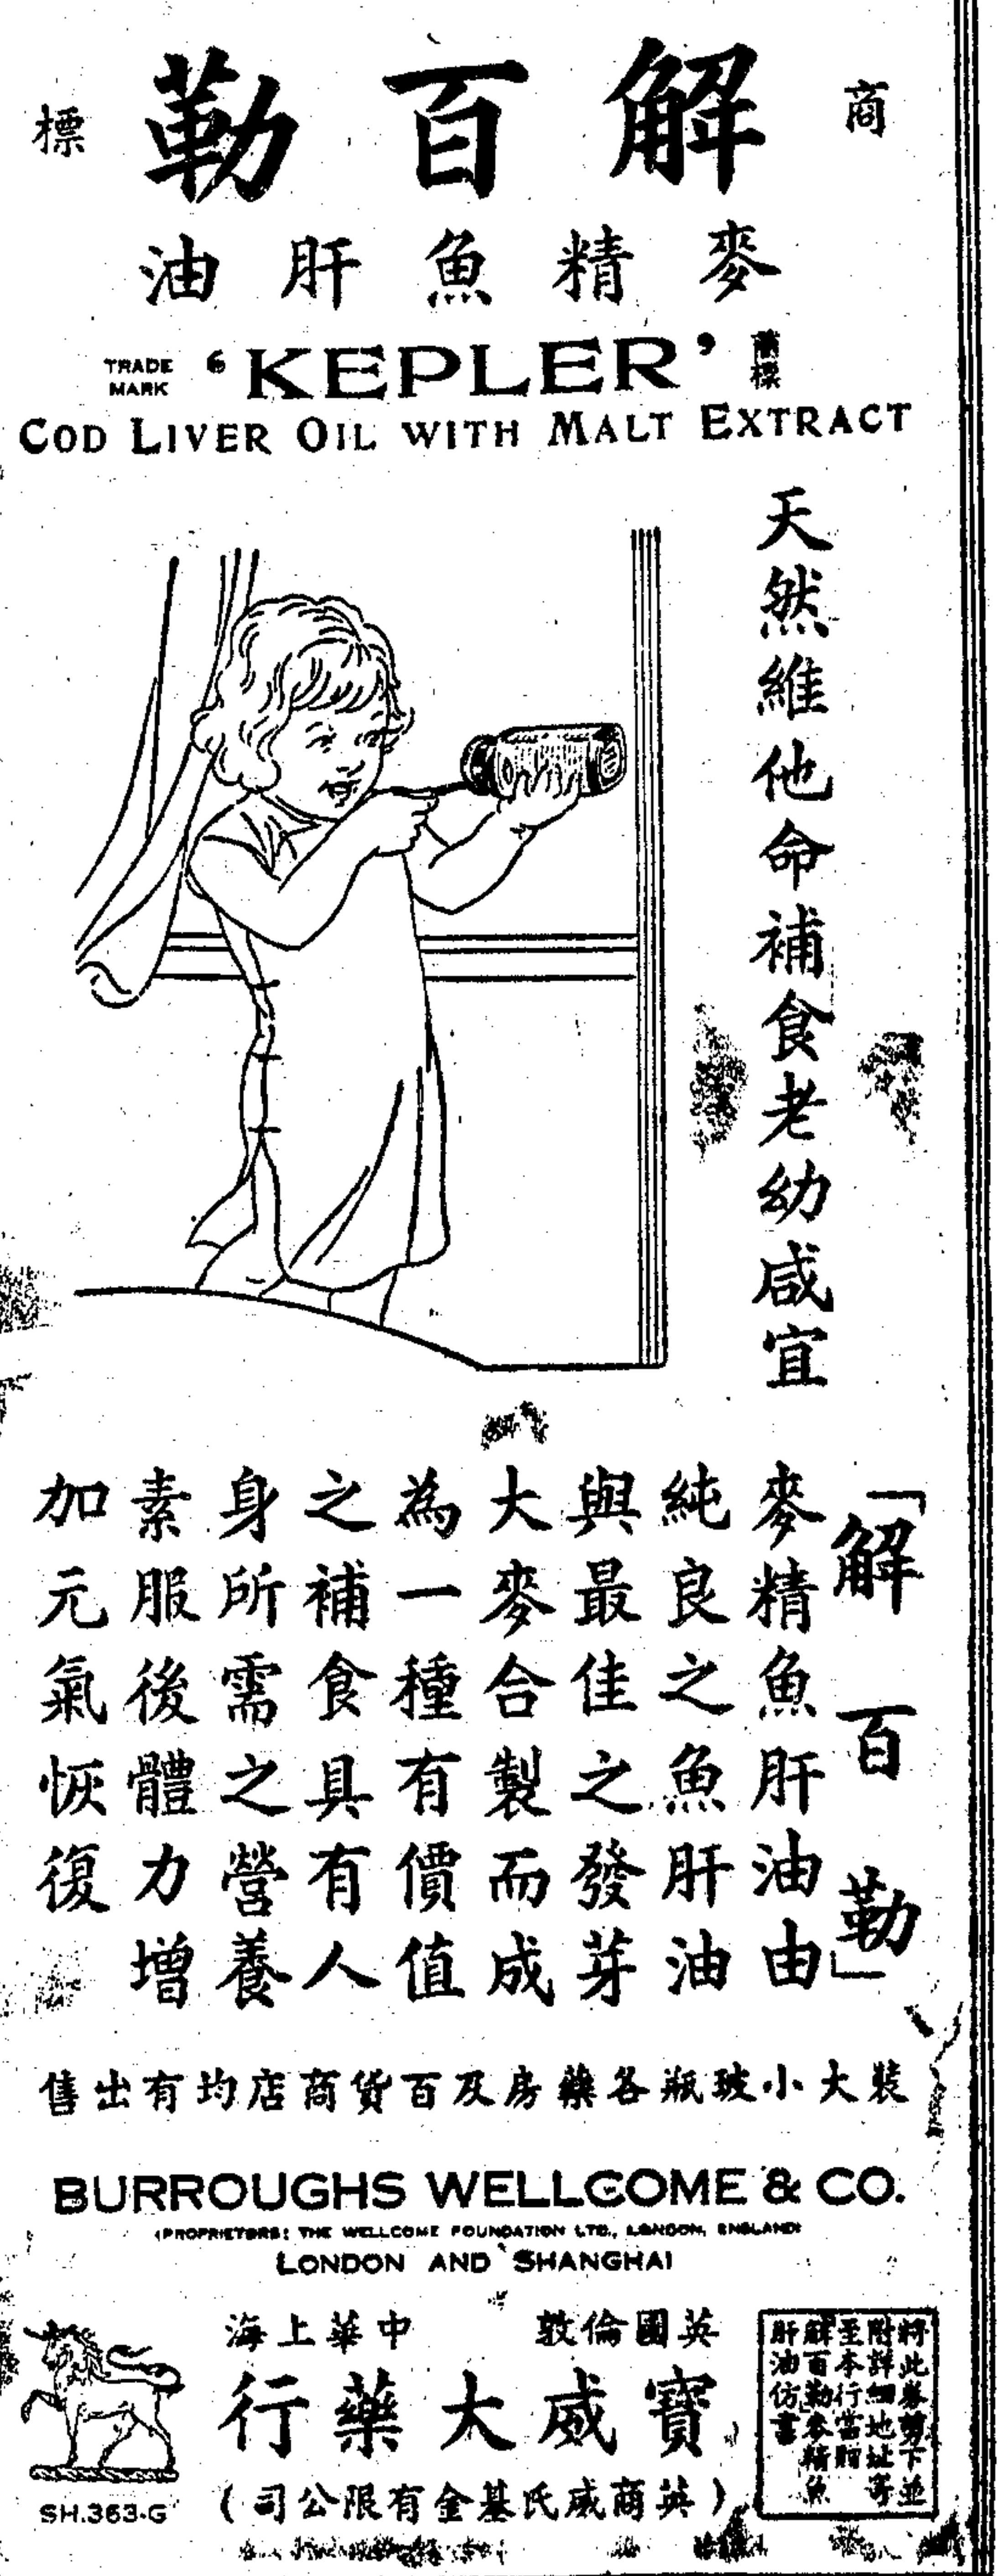 商 解百勒 標
麥精魚肝油
TRADE MARK 'KEPLER' 商標
COD LIVER OIL WITH MALT EXTRACT
天然維他命補食老幼咸宜
「解百勒」
麥精魚肝油由
純良之魚肝油
與最佳之發芽
大麥合製而成
為一種有價值
之補食具有人
身所需之營養
素服後體力增
加元氣恢復
裝大小玻瓶各藥房及百貨商店均有出售
BURROUGHS WELLCOME & CO.
(PROPRIETORS: THE WELLCOME FOUNDATION LTD., LONDON, ENGLAND)
LONDON AND SHANGHAI
英國倫敦 中華上海
寶威大藥行
(英商威氏基金有限公司)
將此券剪下並
附詳細地址寄
至本行當贈
解百勒麥精魚
肝油仿書
SH.363·G